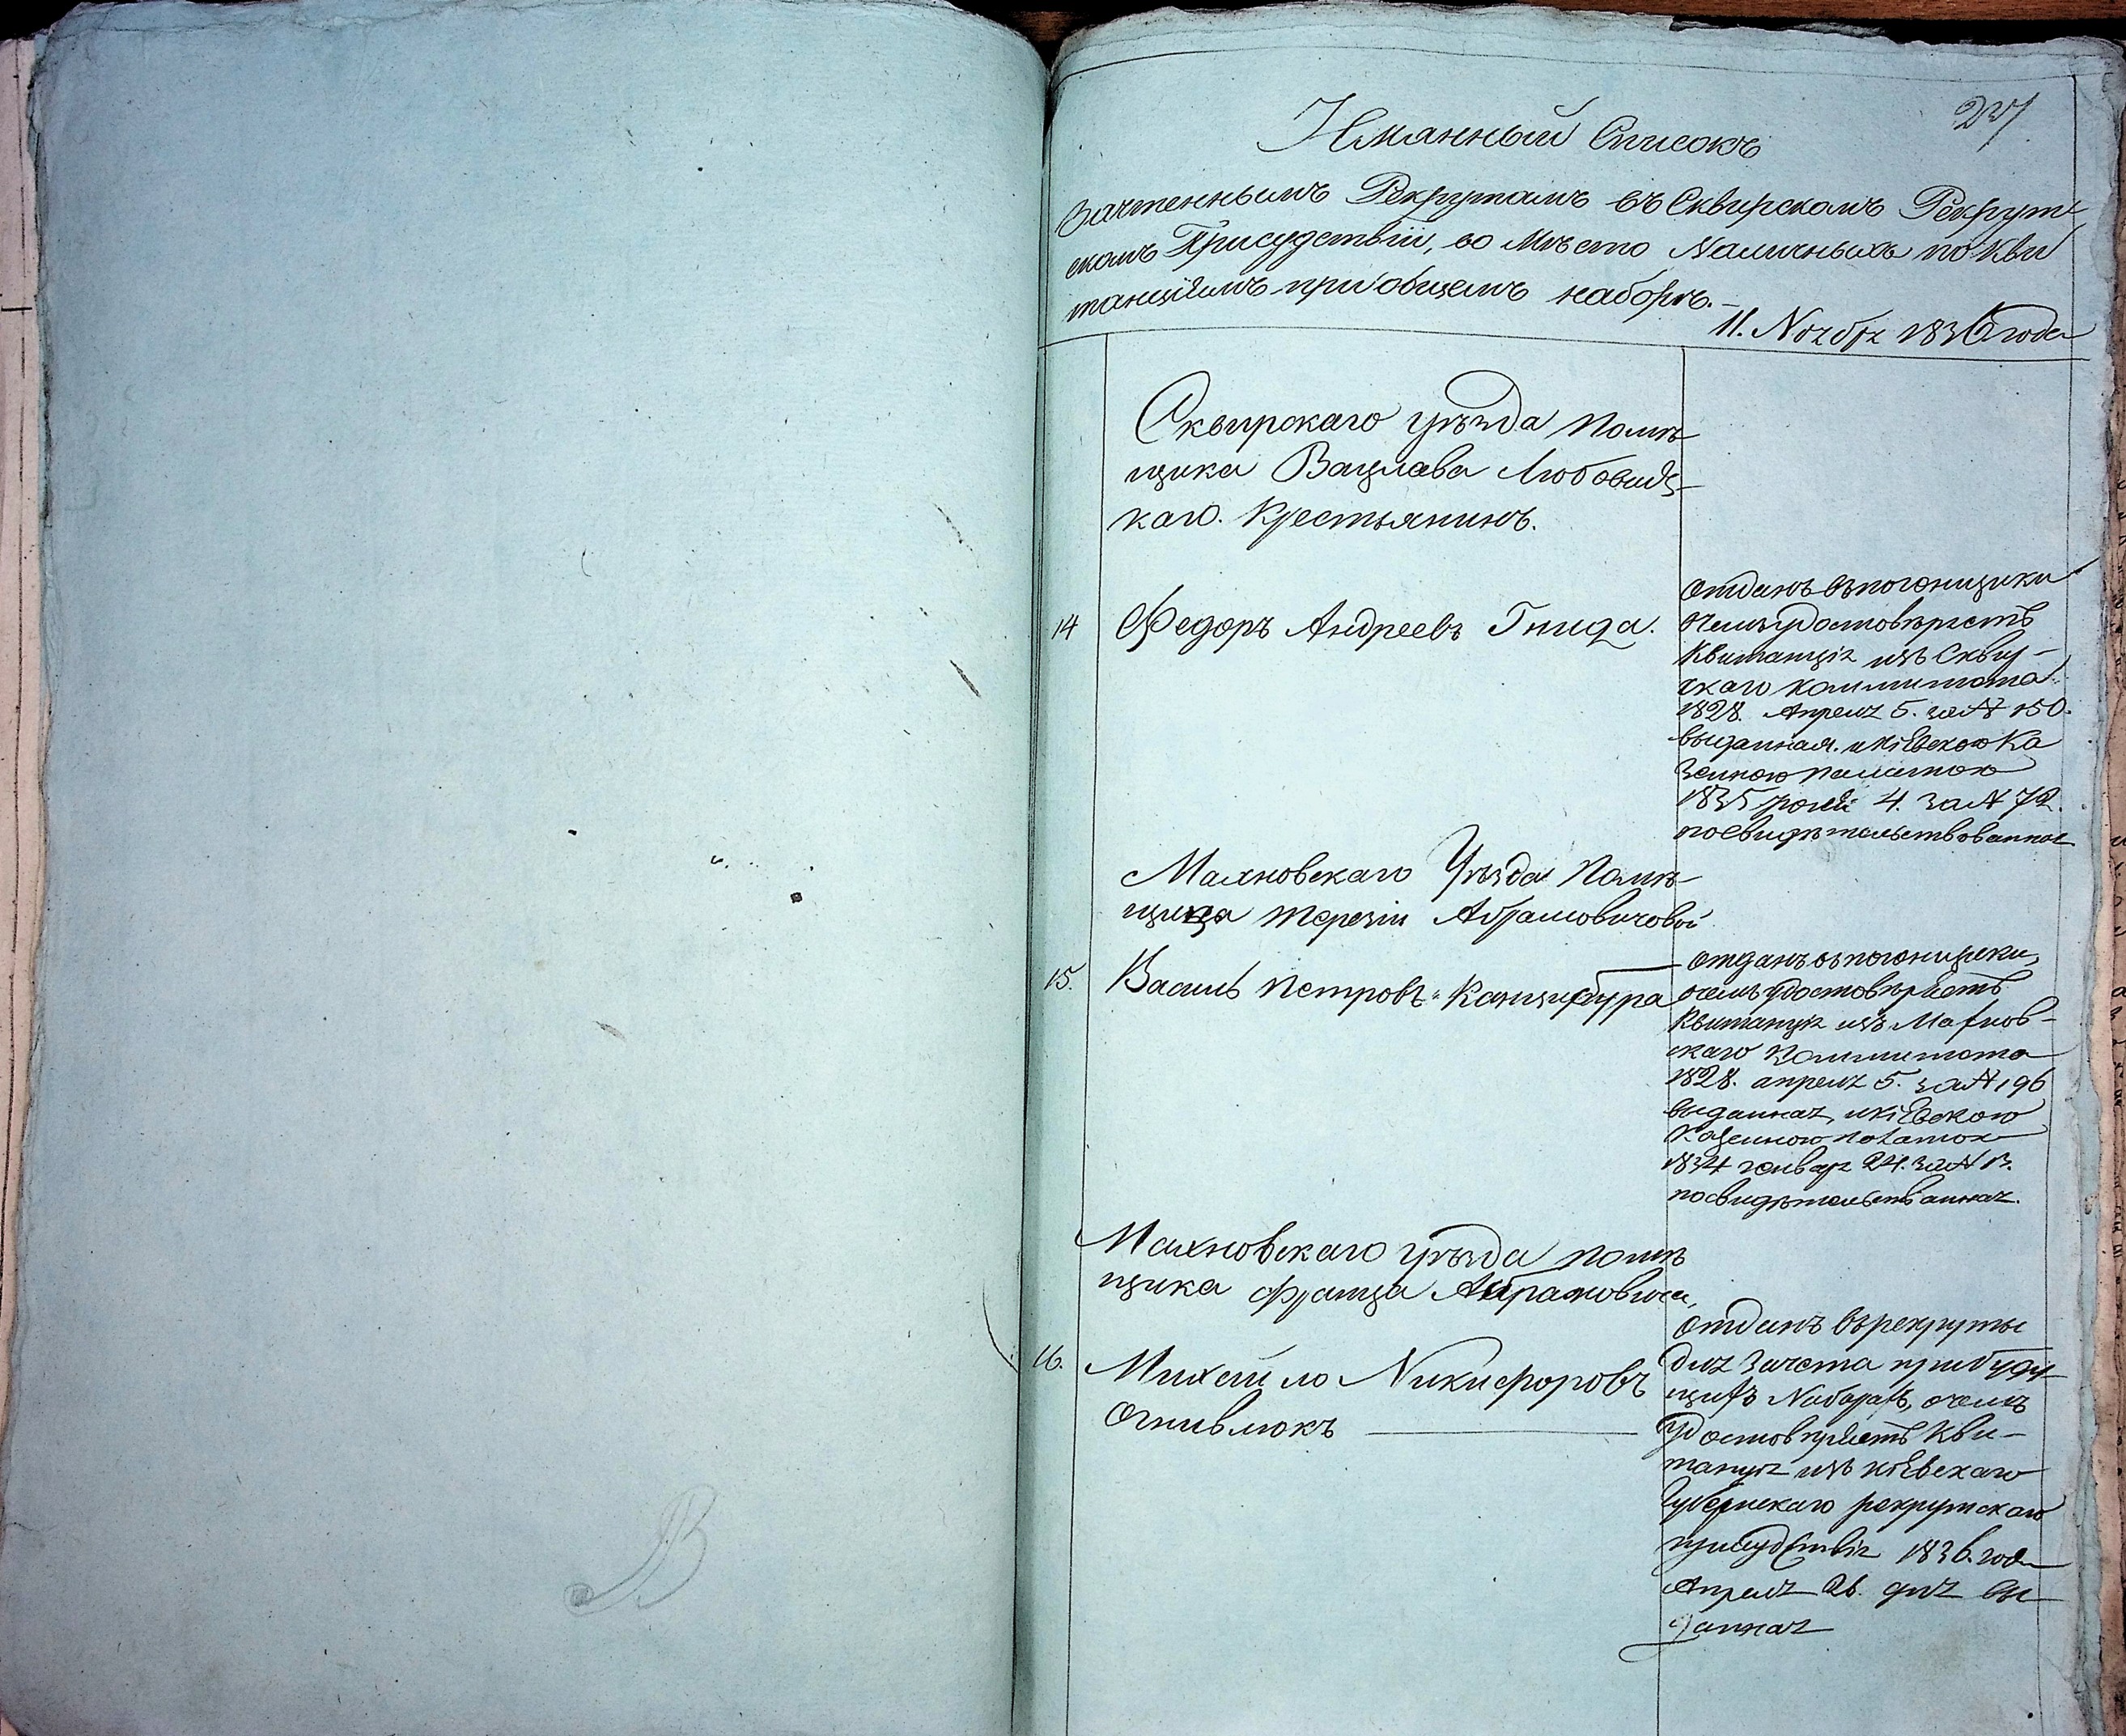 237
Имянный Списокъ
Зачтеннымъ Рекрутамъ въ Сквирскомъ Рекрут
скомъ Присудствіи, во Мѣсто Наличныхъ по Кви
танціямъ при общемъ наборѣ.-
11. Ноября 1836 года
Сквирскаго уѣзда Помѣ
щика Вацлава Любовидз-
каго. Крестьянинъ.
14 Федоръ Андреевъ Гнида.
отданъ въ погонщики
очемъ удостовѣряетъ
Квитанція изъ Сквир-
скаго Коммитета
1828. Апреля 5. за № 150.
выданная. и Кіевскою Ка
зенною Палатою
1835 Юлій 4. за № 72.
посвидѣтельствованная
Махновскаго Уѣзда Помѣ-
щица Терезіи Абрамовичовой
15. Василь Петровъ Канцибура
отданъ въ погонщики,
очемъ удостовѣряетъ
Квитанція изъ Махнов-
скаго Коммитета
1828. апреля 5. за № 196
выданная, и Кіевскою
Казенною Полатою
1834 Генваря 24. за № 13.
посвидѣтельствванная.
Махновскаго уѣзда помѣ
щика Франца Абрамовича,
16. Михайло Никифоровъ
Огнивлюкъ
Отданъ въ рекруты
для Зачета при буду
щихъ Наборахъ, очемъ
Удостовѣряетъ Кви-
танція изъ Кіевскаго
Губернскаго рекрутскаго
присудствія 1836. года
Апреля 26. дня вы
данная
В